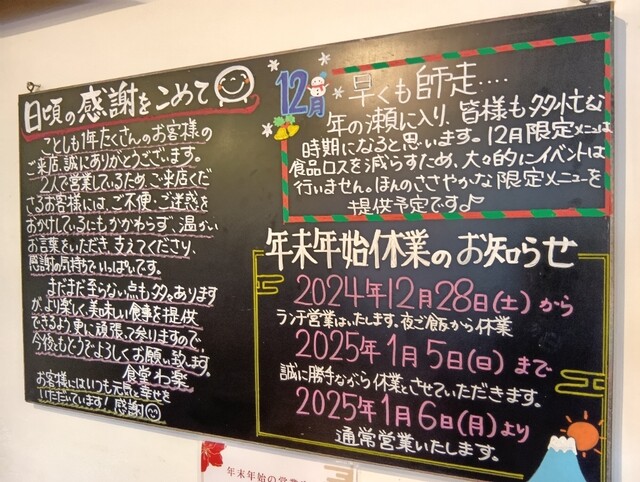 日頃の感謝をこめて
ことしも1年たくさんのお客様の
ご来店、誠にありがとうございます。
2人で営業しているため、ご来店くだ
さるお客様には、ご不便、ご迷惑を
おかけしているにもかかわらず、温かい
お言葉をいただき、支えてくださり、
感謝の気持ちでいっぱいです。
まだまだ至らない点も多々あります
が、より楽しく、美味しい食事を提供
できるよう、更に頑張って参りますので、
今後もどうぞよろしくお願い致します。
食堂わ楽
お客様にはいつも元気と幸せを
いただいています!感謝
12月
早くも師走....
年の瀬に入り、皆様も多忙な
時期になると思います。12月限定メニューは
食品ロスを減らすため、大々的にイベントは
行いません。ほんのささやかな限定メニューを
提供予定です♪
年末年始休業のお知らせ
2024年12月28日(土)から
ランチ営業はいたします。夜ご飯から休業
2025年1月5日(日)まで
誠に勝手ながら休業とさせていただきます。
2025年1月6日(月)より
通常営業いたします。
年末年始の営業